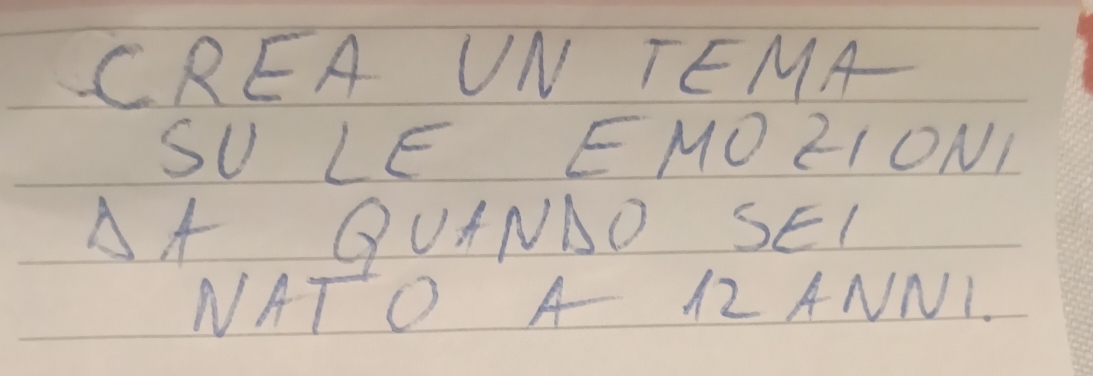 CREA UN TEMA
SU LE EMOZIONI
DA QUANDO SEI
NATO A 12 ANNI.